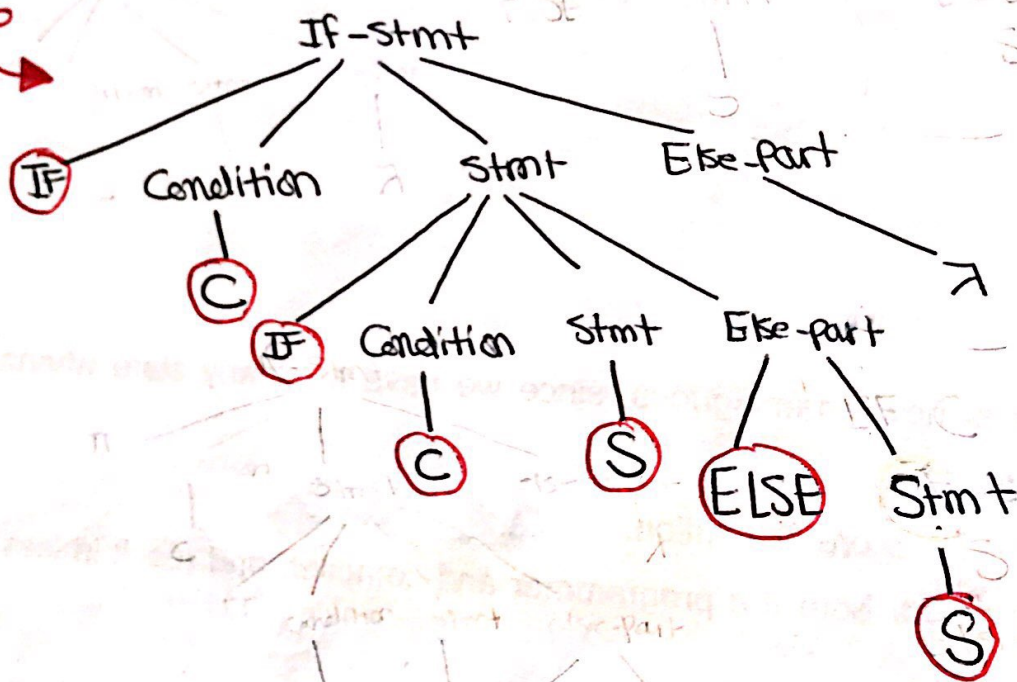 If-Stmt
IF Condition Stmt Else-part
C λ
IF Condition Stmt Else-part
C S ELSE Stmt
S